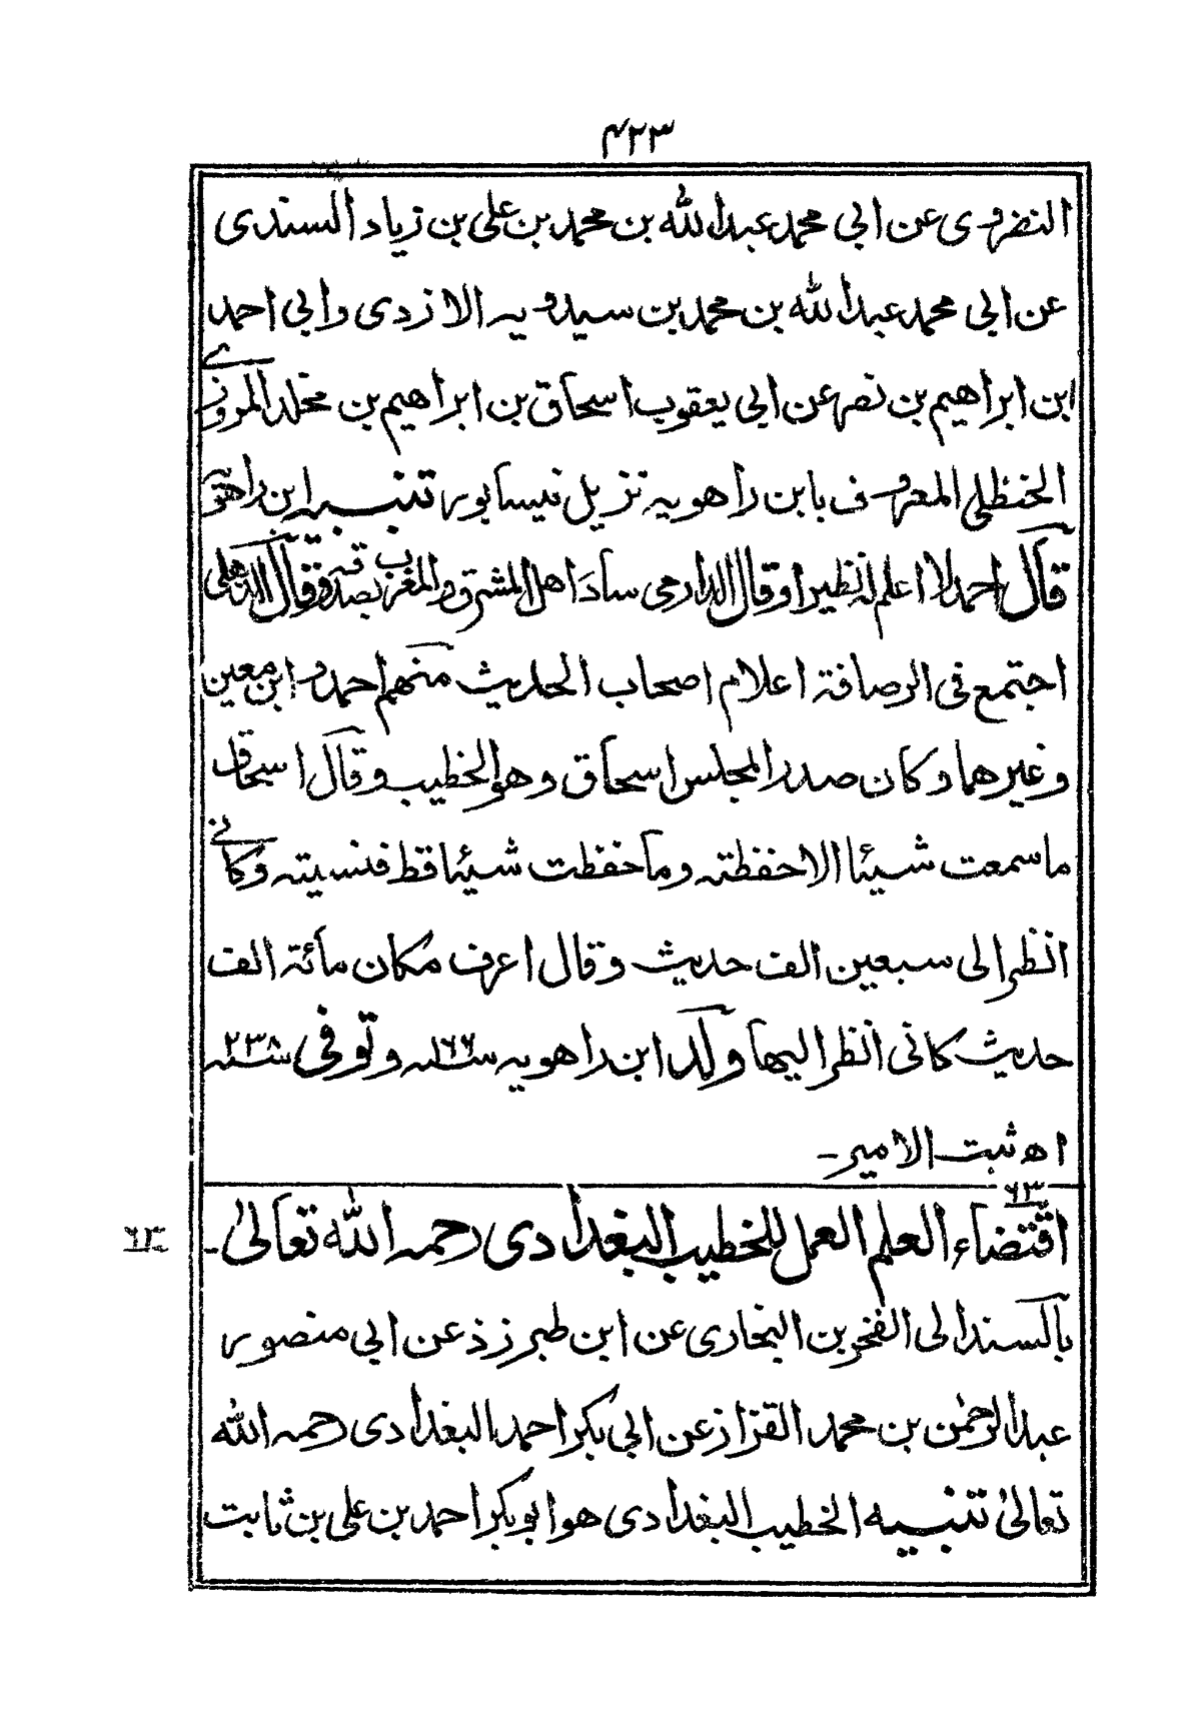 ۴۲۳
النضروی عن ابی محمد عبد الله بن محمد بن علی بن زیاد السندی
عن ابی محمد عبد الله بن محمد بن سیدویہ الازدی وابی احمد
ابن ابراھیم بن نصر عن ابی یعقوب اسحاق بن ابراھیم بن مخلد المروزی
الحنظلی المعروف بابن راھویہ نزیل نیسابور تنبیہ ابن راھویہ
قال احمد لا اعلم لہ نظیرا وقال الدارمی ساد اھل المشرق والمغرب بصدقہ وقال الذھلی
اجتمع فی الرصافۃ اعلام اصحاب الحدیث منھم احمد وابن معین
وغیرھما وکان صدر المجلس اسحاق وھو الخطیب وقال اسحاق
ما سمعت شیئا الا حفظتہ وما حفظت شیئا قط فنسیتہ وکانی
انظر الی سبعین الف حدیث وقال اعرف مکان مائۃ الف
حدیث کانی انظر الیھا ولد ابن راھویہ سنہ ۱۶۶ وتوفی سنہ ۲۳۸
اھ ثبت الامیر۔
۶۳
اقتضاء العلم العمل للخطیب البغدادی رحمہ اللہ تعالیٰ۔
۶۳
بالسند الی الفخر بن البخاری عن ابن طبرزذ عن ابی منصور
عبد الرحمٰن بن محمد القزاز عن ابی بکر احمد البغدادی رحمہ اللہ
تعالیٰ تنبیہ الخطیب البغدادی ھو ابو بکر احمد بن علی بن ثابت